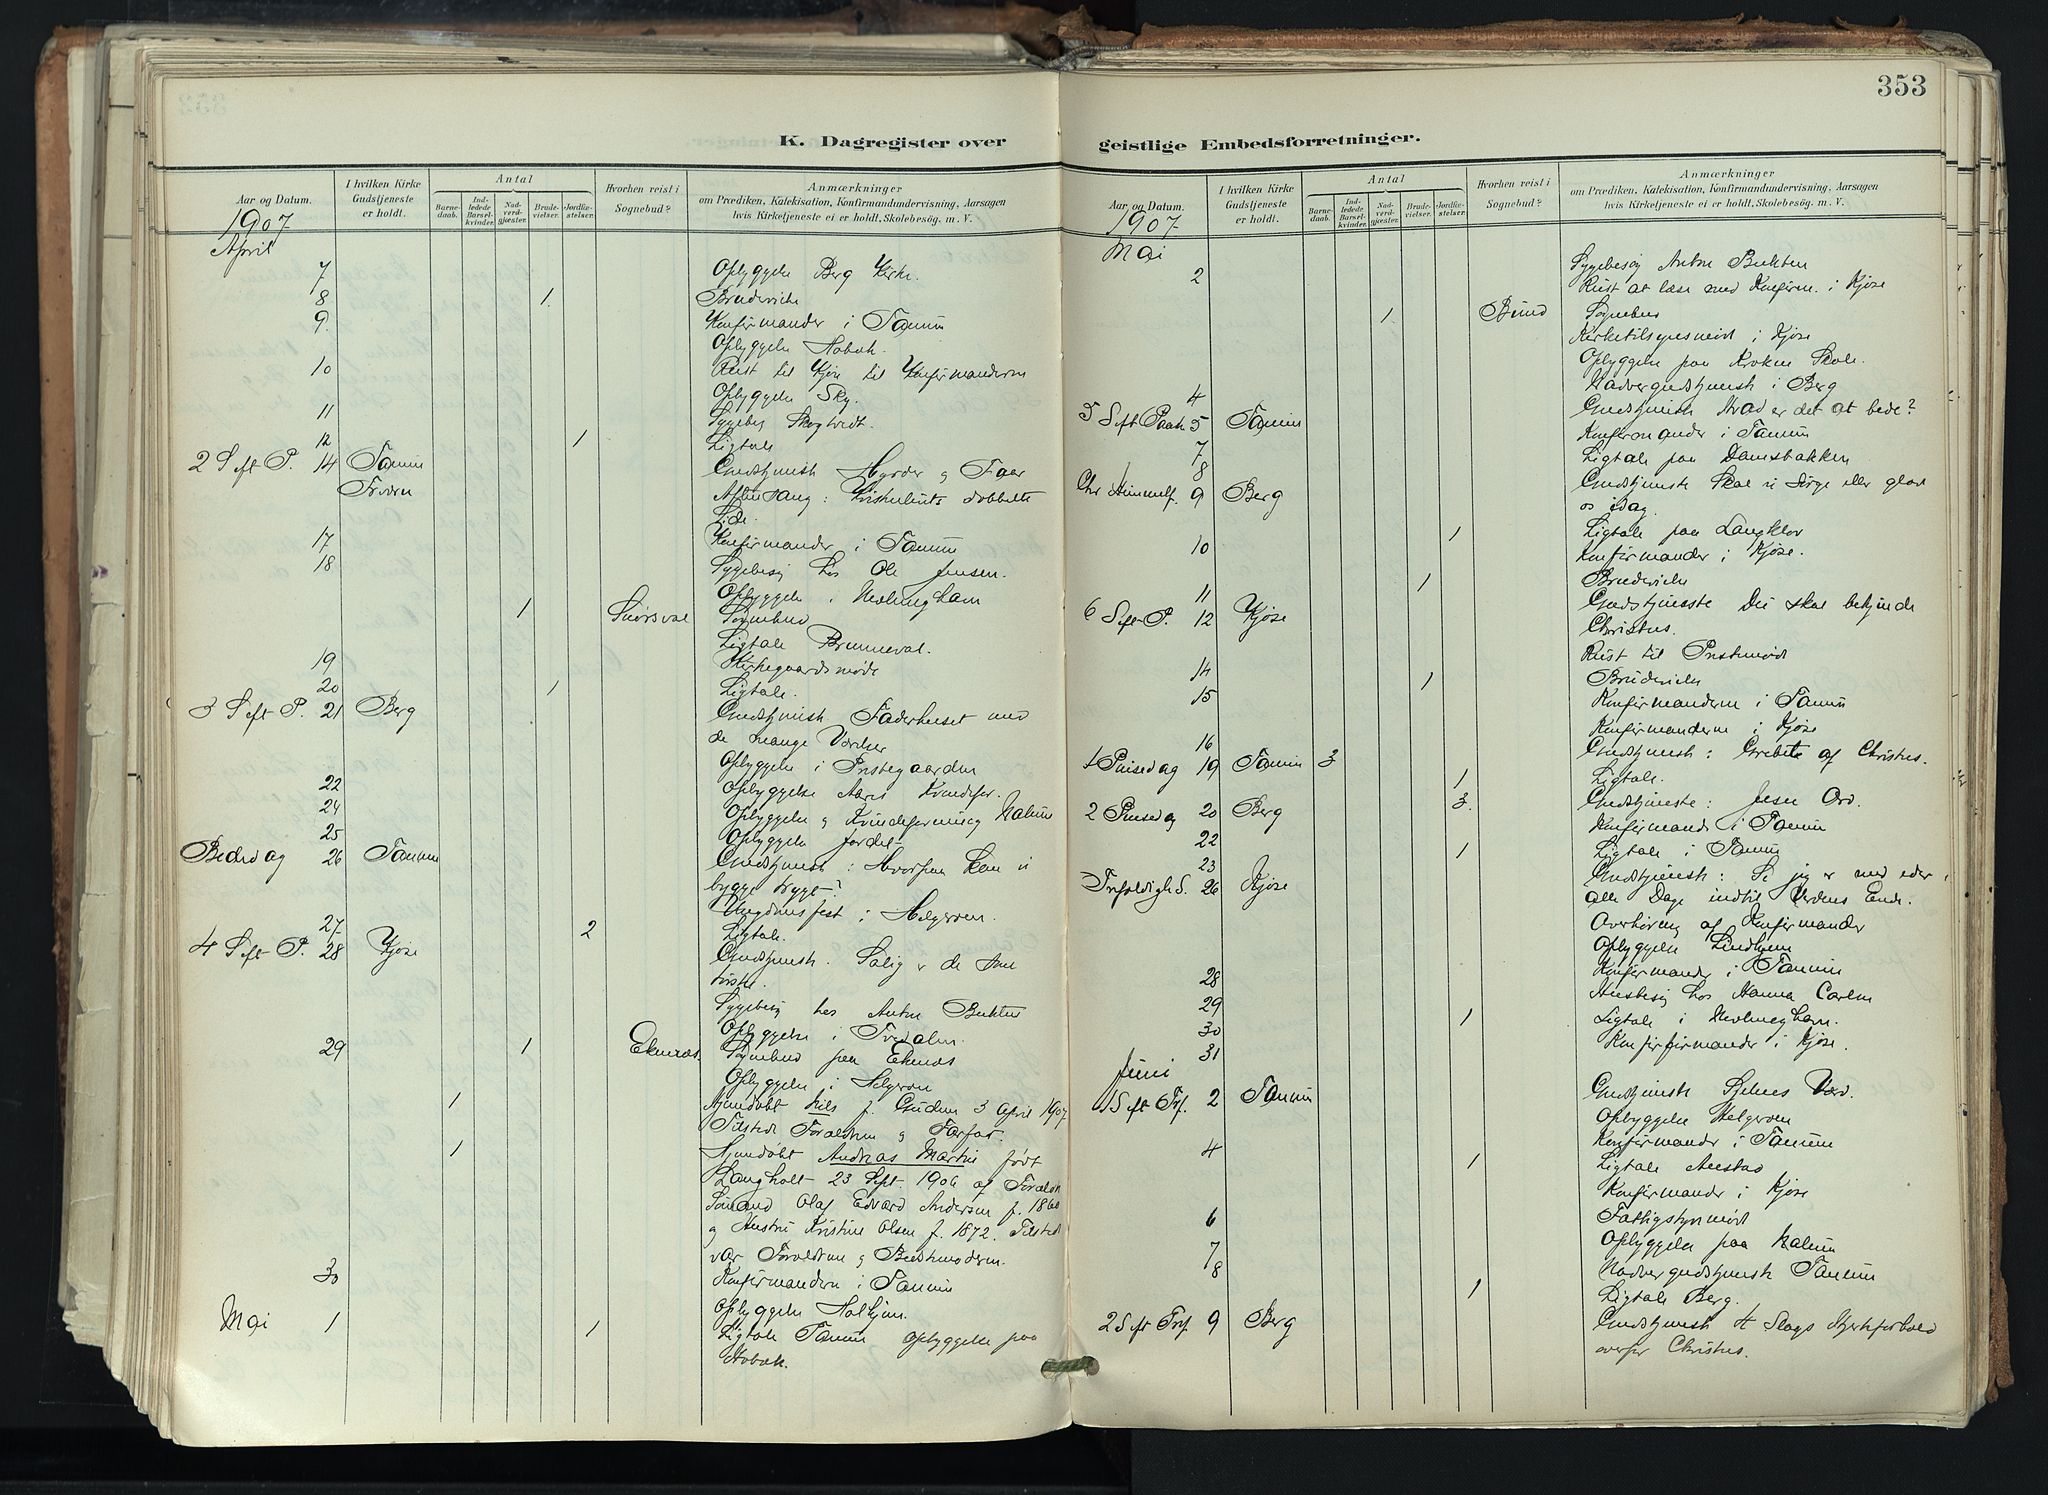 353
K. Dagregister over
geistlige Embedsforretninger.
Aar og Datum.
I hvilken Kirke Gudstjeneste er holdt.
Antal
Barnedaab.
Indledede Barselkvinder.
Nadverdgjæster.
Brudevielser.
Jordfæstelser.
Hvorhen reist i Sognebud?
Anmærkninger
om Prædiken, Katekisation, Konfirmandundervisning, Aarsagen
hvis Kirketjeneste ei er holdt, Skolebesøg. m. V.
1907
April
7 Opbyggelse Berg Kirke.
8 1. Brudevielse
9. Konfirmander i Tanum
Opbyggelse Hobæk.
10 Reist til Kjøse til Konfirmanderne
Opbyggelse Sky.
11 Sygebesøg
12 1 Ligtale
2 S eft P. 14 Tanum Gudstjeneste Hyrder og Faar
Aftensang: dobbelte
Side.
17 Konfirmander i Tanum
18 Sygebesøg hos Ole Jensen.
Opbyggelse i Nevlunghavn
1 Sognebud
Ligtale
19 Kirkegaardsmøde
20 1 Ligtale.
3 S eft P. 21 Berg Gudstjeneste Faderhuset med
de mange Værelser
Opbyggelse i Præstegaarden
22 Opbyggelse Kvindefor.
24 Opbyggelse og Kvindeforening Malum
25 Opbyggelse
Bededag 26 Tanum Gudstjeneste: Hvorpaa kan vi
bygge trygt?
Ungdomsfest i Helgeroen.
27 2 Ligtale.
4 S eft P. 28 Kjøse Gudstjeneste. Salig er de som
Sygebesøg hos Anton Bukten
Opbyggelse i Tvedalen.
29 1 Ekenæs Sognebud paa Ekenæs
Opbyggelse i Helgeroen
1 Hjemdøbt Nils f. 3 April 1907
Tilstede Forældrene og Farfar.
1 Hjemdøbt Andreas Martin født
Langholt 23 Sept. 1906 af Forældre
Sømand Olaf Edvard Andersen f. 1860
og Hustru Kristine Olsen f. 1872. Tilstede
var Forældrene og Bedstemoderen.
30 Konfirmanderne i Tanum
Opbyggelse
Mai 1 1 Ligtale Tanum Opbyggelse paa
Hobæk.
Aar og Datum.
I hvilken Kirke Gudstjeneste er holdt.
Antal
Barnedaab.
Indledede Barselkvinder.
Nadverdgjæster.
Brudevielser.
Jordfæstelser.
Hvorhen reist i Sognebud?
Anmærkninger
om Prædiken, Katekisation, Konfirmandundervisning, Aarsagen
hvis Kirketjeneste ei er holdt, Skolebesøg. m. V.
1907
Mai
Sygebesøg Anton Bukten
2 Reist at læse med Konfirm. i Kjøse
1 Sognebud
Kirketilsynsmøde i Kjøse
Opbyggelse paa Kroken Skole.
4 Nadvergudstjeneste i Berg
5 S eft Paask 5 Tanum Gudstjeneste Hvad er det at bede?
7 Konfirmander i Tanum
8 Ligtale paa Damsbakken
Chr Himmelf. 9 Berg Gudstjeneste Skal vi sørge eller glæde
os idag.
1 Ligtale paa
10 Konfirmander i Kjøse.
11 1 Brudevielse
6 S eft P. 12 Kjøse Gudstjeneste De skal bekjende
Christus.
Reist til Præstemøde
14 1 Brudevielse
15 Konfirmanderne i Tanum
16 Konfirmanderne i Kjøse
1 Pinsedag 19 Tanum 3 Gudstjeneste: Grebet af Christus.
1 Ligtale.
2 Pinsedag 20 Berg 3. Gudstjeneste: Jesu Ord.
22 Konfirmander i Tanum
23 1 Ligtale i Tanum
Trefoldigh S. 26 Kjøse Gudstjeneste: Se jeg er med eder
alle Dage indtil Verdens Ende.
Overhøring af Konfirmander
Opbyggelse Lindhjem
28 Konfirmander i Tanum
29 Husbesøg hos Hanna Carlsen
30 1 Ligtale i Nevlunghavn.
31 Konfirfirmander i Kjøse.
Juni
1 S eft Trf. 2 Tanum Gudstjeneste Sjelens Værd.
Opbyggelse Helgeroen
4 Konfirmander i Tanum
1 Ligtale Anestad
Konfirmander i Kjøse
6 Fattigstyrmøde
7 Opbyggelse paa Malum
8 Nadvergudstjeneste Tanum
1 Ligtale Berg.
2 S eft Trf. 9 Berg Gudstjeneste
overfor Christus.